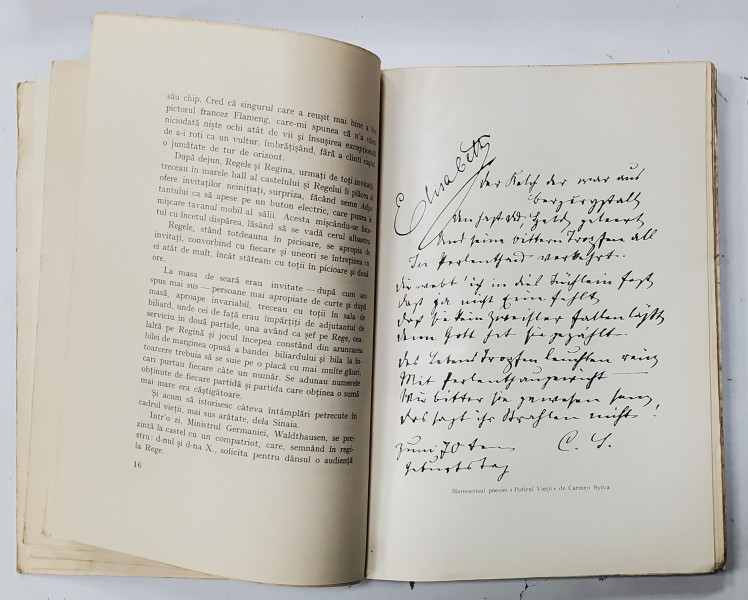 său chip. Cred că singurul care a reușit mai bine a fost
pictorul francez Flameng, care-mi spunea că n'a văzut
niciodată niște ochi atât de vii și însușirea excepțională
de a-i roti ca un vultur, îmbrățișând, fără a clinti capul,
o jumătate de tur de orizont.
După dejun, Regele și Regina, urmați de toți invitații,
treceau în marele hall al castelului și Regelui îi plăcea să
ofere invitaților neinițiați, surpriza, făcând semn Adju-
tantului ca să apese pe un buton electric, care punea în
mișcare tavanul mobil al sălii. Acesta mișcându-se înce-
tul cu încetul dispărea, lăsând să se vadă cerul albastru.
Regele, stând totdeauna în picioare, se apropia de
invitați, convorbind cu fiecare și uneori se întreținea cu
ei atât de mult, încât stăteam cu toții în picioare și două
ore.
La masa de seară erau invitate — după cum am
spus mai sus — persoane mai apropiate de curte și după
masă, aproape invariabil, treceau cu toții în sala de
biliard, unde cei de față erau împărțiți de adjutantul de
serviciu în două partide, una având ca șef pe Rege, cea-
laltă pe Regină și jocul începea constând din aruncarea
bilei de marginea opusă a bandei biliardului și bila la în-
toarcere trebuia să se suie pe o placă cu mai multe găuri,
cari purtau fiecare câte un număr. Se adunau numerele
obținute de fiecare partidă și partida care obținea o sumă
mai mare era câștigătoare.
Și acum să istorisesc câteva întâmplări petrecute în
cadrul vieții, mai sus arătate, dela Sinaia.
Intr'o zi, Ministrul Germaniei, Waldthausen, se pre-
zintă la castel cu un compatriot, care, semnând în regi-
stru: d-nul și d-na X., solicita pentru dânsul o audiență
la Rege.
16
Elisabeth
Der Kelch der war aus
Bergkrystall
Den hast du, Held, geleert
Und seine bittern Tropfen all
In Perlenthau verkehrt.
Du webt ich in dies Tüchlein fest
Daß ja nicht Eine fehlt
Daß sie kein Zweifler fallen läßt
Denn Gott hat sie gezählt.
Des Lebens Tropfen leuchten rein
Mit Perlenthau
Wie bitter sie gewesen sein,
Das sagt ihr Strahlen nicht!
Zum 70ten C. S.
Geburtstag
Manuscrisul poeziei «Potirul Vieții» de Carmen Sylva